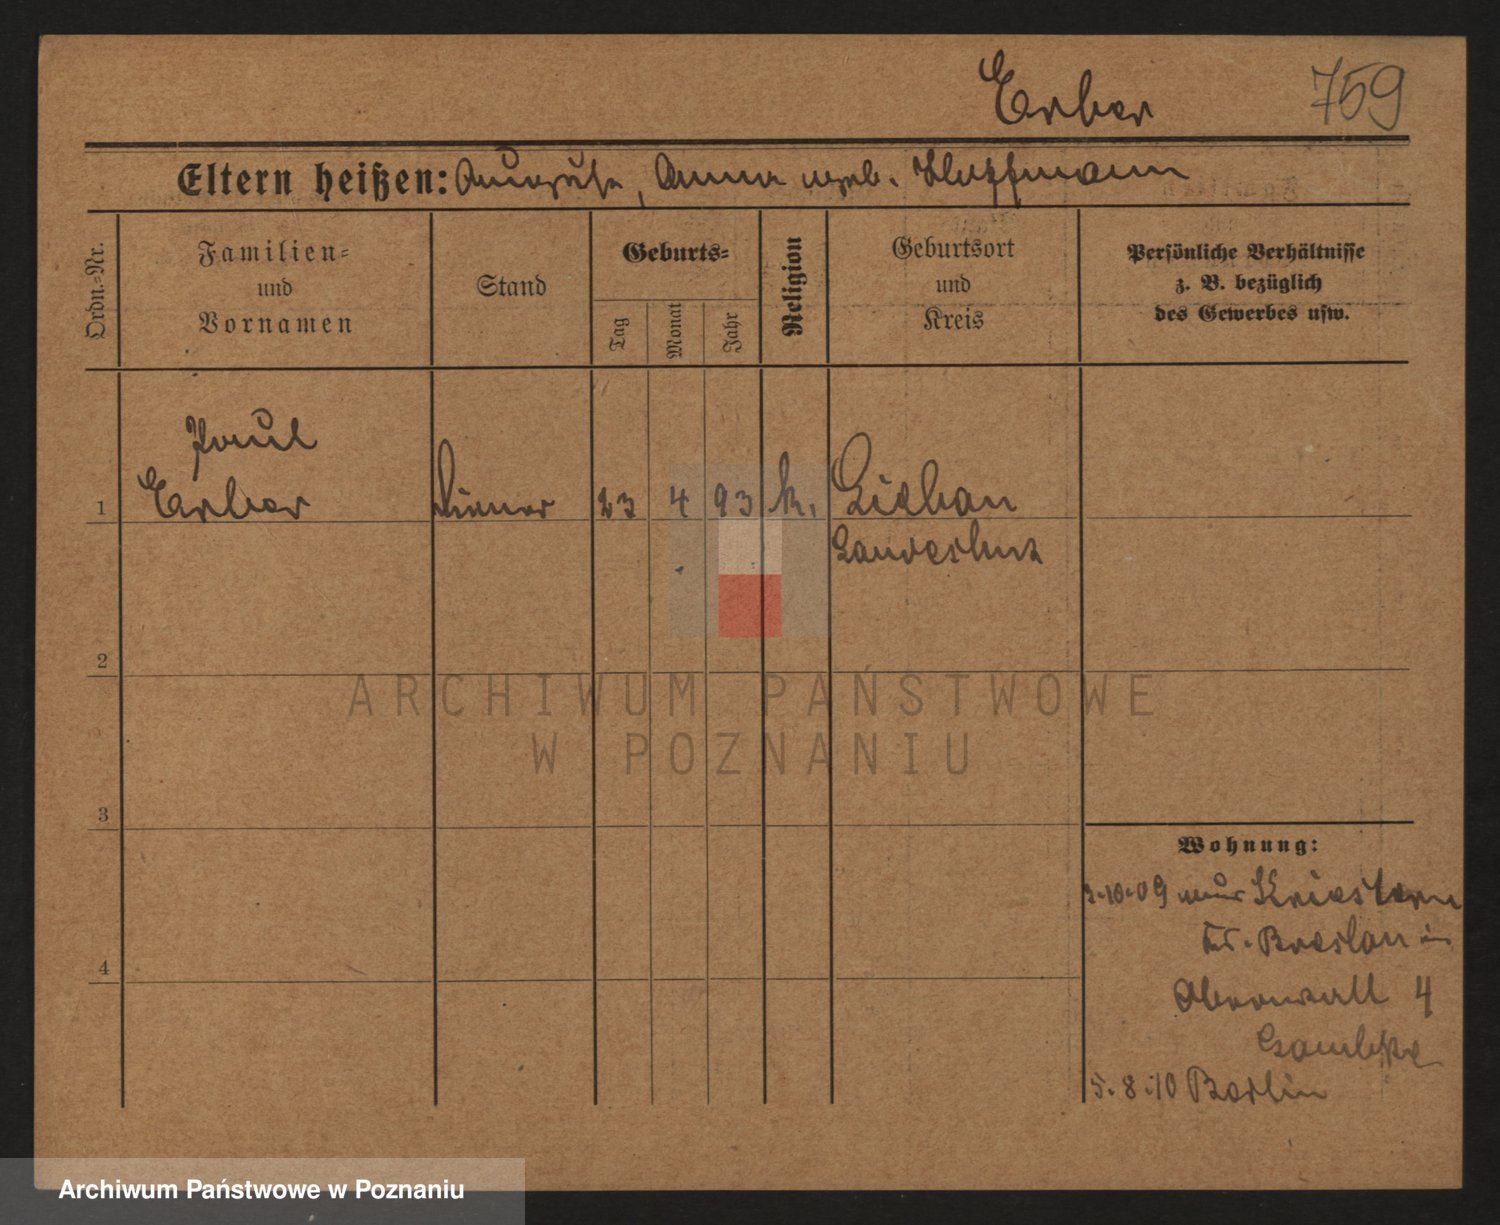 Erber 759
Eltern heißen: August, Anna geb. Hoffmann
Ordn.-Nr.
Familien-
und
Vornamen
Stand
Geburts-
Tag
Monat
Jahr
Religion
Geburtsort
und
Kreis
Persönliche Verhältnisse
z. B. bezüglich
des Gewerbes usw.
Paul
1 Erber Diener 23 4 93 k. Liebau
Landeshut
2
ARCHIWUM PAŃSTWOWE
W POZNANIU
3
Wohnung:
3.10.09 Kriestern
Kr. Breslau
4
Oberwall 4
5.8.10 Berlin
Archiwum Państwowe w Poznaniu